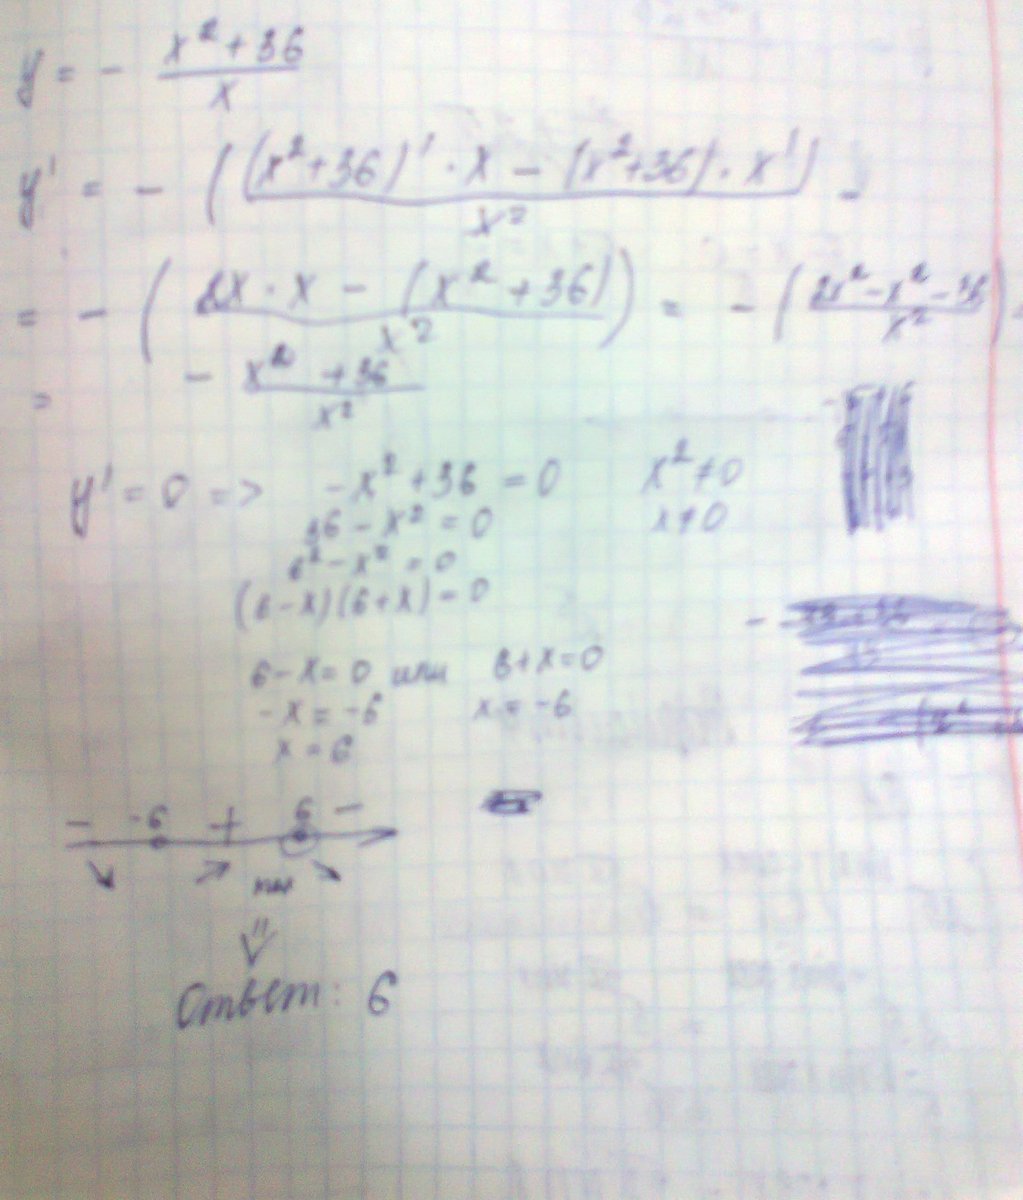 y = - (x² + 36)/x
y' = - ( ((x²+36)' · x - (x²+36) · x')/x² ) -
= - ( (2x · x - (x² + 36))/x² ) = - ( (2x² - x² - 36)/x² ) =
= (-x² + 36)/x²
y' = 0 => -x² + 36 = 0 x² ≠ 0
36 - x² = 0 x ≠ 0
6² - x² = 0
(6-x)(6+x) = 0
6 - x = 0 или 6 + x = 0
-x = -6 x = -6
x = 6
- -6 + 6 -
↘ ↗ max ↘
⇓
Ответ: 6